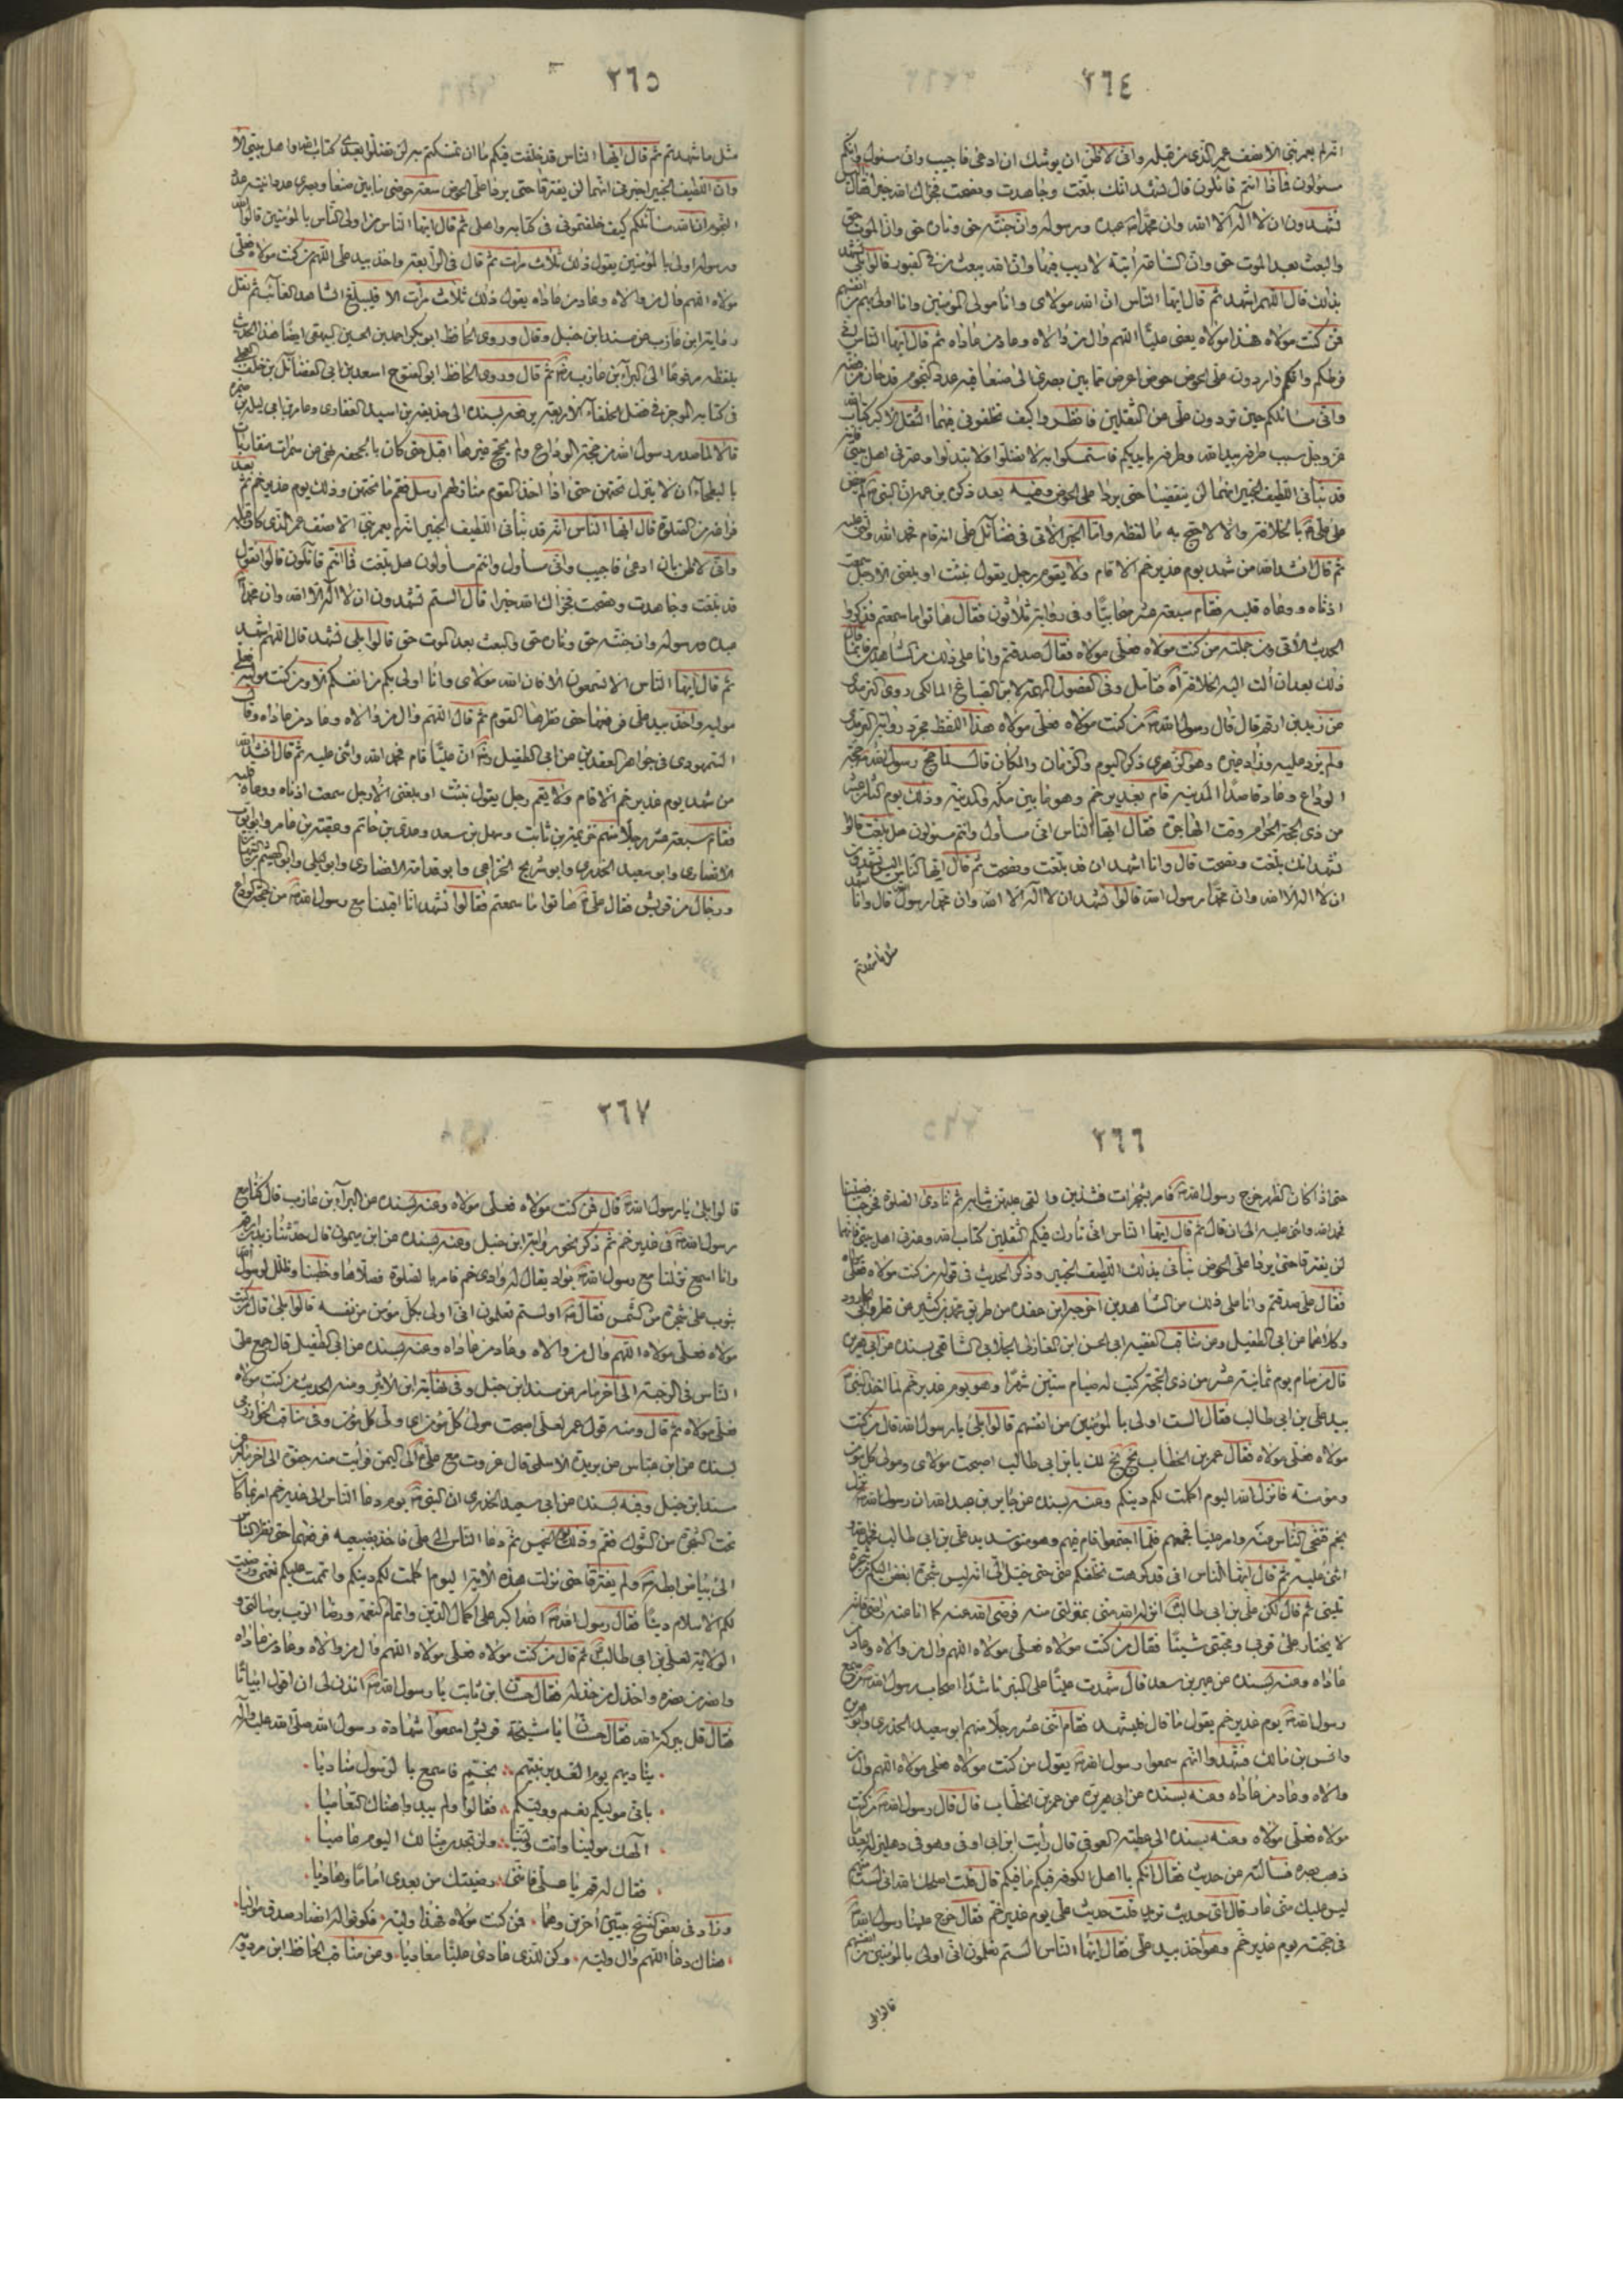 ٢٦٤
انه لم يعمر نبي الا نصف عمر الذي من قبله واني لاظن ان يوشك ان ادعى فاجيب واني مسئول وانكم
مسئولون فماذا انتم قائلون قال نشهد انك بلغت وجاهدت ونصحت فجزاك الله خيرا فقال
تشهدون ان لا اله الا الله وان محمدا عبده ورسوله وان جنته حق وناره حق وان الموت حق
والبعث بعد الموت حق وان الساعة آتية لا ريب فيها وان الله يبعث من في القبور قالوا بلى نشهد
بذلك قال اللهم اشهد ثم قال ايها الناس ان الله مولاى وانا مولى المؤمنين وانا اولى بهم من انفسهم
فمن كنت مولاه فهذا مولاه يعني عليا اللهم وال من والاه وعاد من عاداه ثم قال ايها الناس اني
فرطكم وانكم واردون على الحوض حوض اعرض مما بين بصرى الى صنعا فيه عدد النجوم قدحان من فضة
واني سائلكم حين تردون على عن الثقلين فانظروا كيف تخلفوني فيهما الثقل الاكبر كتاب الله
عز وجل سبب طرفه بيد الله وطرفه بايديكم فاستمسكوا به لا تضلوا ولا تبدلوا وعترتى اهل بيتى فانه
قد نبأنى اللطيف الخبير انهما لن ينقضيا حتى يردا على الحوض وفيه بعد ذكر
على على بالخلافة والا لاحتج به
ثم قال انشد الله من شهد يوم غدير خم الا قام ولا يقوم رجل يقول نبئت او بلغنى الا رجل سمعت
اذناه ووعاه قلبه فقام سبعة عشر صحابيا وفى رواية ثلاثون فقال هاتوا ما سمعتم فذكروا
الحديث الآتى ومن جملته من كنت مولاه فعلى مولاه فقال صدقتم وانا على ذلك من الشاهدين
ذلك بعد ان آلت اليه الخلافة فتأمل وفى الفصول المهمة لابن الصباغ المالكى روى الترمذى
عن زيد بن ارقم قال قال رسول الله من كنت مولاه فعلى مولاه هذا اللفظ مجرد رواية الترمذى
ولم يزد عليه وزاد غيره وهو الزهرى ذكر اليوم والزمان والمكان قال لما حج رسول الله حجة
الوداع وعاد قاصدا المدينة قام بغدير خم وهو ما بين مكة والمدينة وذلك يوم الثامن عشر
من ذى الحجة الحرام وقت الهاجرة فقال ايها الناس انى مسأول وانتم مسئولون هل بلغت قالوا
نشهد انك بلغت ونصحت قال وانا اشهد ان قد بلغت ونصحت ثم قال ايها الناس اليس تشهدون
ان لا اله الا الله وان محمدا رسول الله قالوا نشهد ان لا اله الا الله وان محمدا رسول الله قال وانا اشهد
مثل ما شهدتم
٢٦٥
مثل ما شهدتم ثم قال ايها الناس قد خلفت فيكم ما ان تمسكتم به لن تضلوا بعدى كتاب الله واهل بيتى الا
وان اللطيف الخبير اخبرنى انهما لن يفترقا حتى يردا على الحوض سعة حوضى ما بين صنعا وبصرى عدد انيته عدد
النجوم ان الله سائلكم كيف خلفتمونى فى كتابه واهلى ثم قال ايها الناس من اولى الناس بالمؤمنين قالوا الله
ورسوله اولى بالمؤمنين يقول ذلك ثلاث مرات ثم قال فى الرابعة واخذ بيد على اللهم من كنت مولاه فعلى
مولاه اللهم وال من والاه وعاد من عاداه يقول ذلك ثلاث مرات الا فليبلغ الشاهد الغائب ثم نقل
رواية ابن عازب من مسند ابن حنبل وقال وروى الحافظ ابو بكر احمد بن الحسين البيهقى ايضا هذا الحديث
بلفظه مرفوعا الى البراء بن عازب ثم قال وروى الحافظ ابو الفتوح اسعد بن ابى الفضائل بن خلف العجلى
فى كتابه الموجز فى فضل الخلفاء الاربعة بسنده الى حذيفة بن اسيد الغفارى وعامر بن ابى ليلى بن ضمرة
قالا لما صدر رسول الله من حجة الوداع ولم يحج غيرها اقبل حتى كان بالجحفة نهى عن سمرات متقاربات
بالبطحاء ان لا ينزل تحتهن حتى اذا اخذ القوم منازلهم ارسل فقم ما تحتهن وذلك يوم غدير خم ثم بعد
فراغه من الصلوة قال ايها الناس انه قد نبأنى اللطيف الخبير انه لم يعمر نبى الا نصف عمر الذى كان قبله
وانى لاظن بان ادعى فاجيب وانى مسأول وانتم مسأولون هل بلغت فما انتم قائلون قالوا نقول
قد بلغت وجاهدت ونصحت فجزاك الله خيرا قال الستم تشهدون ان لا اله الا الله وان محمدا
عبده ورسوله وان جنته حق وناره حق والبعث بعد الموت حق قالوا بلى نشهد قال اللهم اشهد
ثم قال ايها الناس الا تسمعون الا فان الله مولاى وانا اولى بكم من انفسكم الا ومن كنت مولاه فعلى
مولاه واخذ بيد على فرفعها حتى نظرها القوم ثم قال اللهم وال من والاه وعاد من عاداه وقال
السمهودى فى جواهر العقدين عن ابى الطفيل ان عليا قام فحمد الله واثنى عليه ثم قال انشد الله
من شهد يوم غدير خم الا قام ولا يقم رجل يقول نبئت او بلغنى الا رجل سمعت اذناه ووعاه قلبه
فقام سبعة عشر رجلا منهم خزيمة بن ثابت وسهل بن سعد وعدى بن حاتم وعقبة بن عامر وابو ايوب
الانصارى وابو سعيد الخدرى وابو شريح الخزاعى وابو قدامة الانصارى وابو ليلى وابو الهيثم بن التيهان
ورجال من قريش فقال على هاتوا ما سمعتم فقالوا نشهد انا اقبلنا مع رسول الله من حجة الوداع
٢٦٦
حتى اذا كان الظهر خرج رسول الله فامر بشجرات فشذبن والقى عليهن ثياب ثم نادى الصلوة فخرجنا فصلينا
فحمد الله واثنى عليه الى ان قال ثم قال ايها الناس انى تارك فيكم الثقلين كتاب الله وعترتى اهل بيتى فانهما
لن يفترقا حتى يردا على الحوض نبأنى بذلك اللطيف الخبير وذكر الحديث فى قوله من كنت مولاه فعلى مولاه
فقال على صدقتم وانا على ذلك من الشاهدين اخرجه ابن عقدة من طريق محمد بن كثير عن فطر وابى الجارود
وكلاهما عن ابى الطفيل ومن مناقب الفقيه ابى الحسن ابن المغازلى الجلابى الشافعى بسنده عن ابى هريرة
قال من صام يوم ثمانية عشر من ذى الحجة كتب له صيام ستين شهرا وهو يوم غدير خم لما اخذ النبى
بيد على بن ابى طالب فقال الست اولى بالمؤمنين من انفسهم قالوا بلى يا رسول الله قال من كنت
مولاه فعلى مولاه فقال عمر بن الخطاب بخ بخ لك يا بن ابى طالب اصبحت مولاى ومولى كل مؤمن
ومؤمنة فانزل الله اليوم اكملت لكم دينكم وعنه بسنده عن جابر بن عبد الله ان رسول الله نزل
بخم فتنحى الناس عنه وامر عليا فجمعهم فلما اجتمعوا قام فيهم وهو متوسد يد على بن ابى طالب فحمد الله
واثنى عليه ثم قال ايها الناس انى قد كرهت تخلفكم عنى حتى خيل الى انه ليس شجرة ابغض اليكم من شجرة
تلينى ثم قال لكن على بن ابى طالب انزله الله منى بمنزلتى منه فرضى الله عنه كما انا عنه راض فانه
لا يختار على قربى ومحبتى شيئا فقال من كنت مولاه فعلى مولاه اللهم وال من والاه وعاد من
عاداه وعنه بسنده عن عمير بن سعد قال شهدت عليا على المنبر ناشدا اصحاب رسول الله من سمع
رسول الله يوم غدير خم يقول ما قال فليشهد فقام اثنى عشر رجلا منهم ابو سعيد الخدرى وابو هريرة
وانس بن مالك فشهدوا انهم سمعوا رسول الله يقول من كنت مولاه فعلى مولاه اللهم وال من
والاه وعاد من عاداه وعنه بسنده عن ابى هريرة عن عمر بن الخطاب قال قال رسول الله من كنت
مولاه فعلى مولاه وعنه بسنده الى عطية العوفى قال رأيت ابن ابى اوفى وهو فى دهليز له بعد ما
ذهب بصره فسألته عن حديث فقال انكم يا اهل الكوفة فيكم ما فيكم قال قلت اصلحك الله انى لست منهم
ليس عليك منى عار قال اى حديث تريد قلت حديث على يوم غدير خم فقال خرج علينا رسول الله
فى حجته يوم غدير خم وهو آخذ بيد على فقال ايها الناس الستم تعلمون انى اولى بالمؤمنين من انفسهم
قالوا بلى
٢٦٧
قالوا بلى يا رسول الله قال فمن كنت مولاه فعلى مولاه وعنه بسنده عن البراء بن عازب قال كنا مع
رسول الله فى غدير خم ثم ذكر نحو رواية ابن حنبل وعنه بسنده عن ابن ميمون قال حدثنا زيد بن ارقم
وانا اسمع نزلنا مع رسول الله بواد يقال له وادى خم فامر بالصلوة فصلاها وخطبنا وظلل لرسول الله
بثوب على شجرة من الشمس فقال اولستم تعلمون انى اولى بكل مؤمن من نفسه قالوا بلى قال من كنت
مولاه فعلى مولاه اللهم وال من والاه وعاد من عاداه وعنه بسنده عن ابى الطفيل قال جمع على
الناس فى الرحبة الى آخر ما مر من مسند ابن حنبل وفى نهاية ابن الاثير ومنه الحديث من كنت مولاه
فعلى مولاه ثم قال ومنه قول عمر لعلى اصبحت مولى كل مؤمن اى ولى كل مؤمن وفى مناقب الخوارزمى
بسنده عن ابن عباس عن بريدة الاسلمى قال غزوت مع على الى اليمن فرأيت منه جفوة الى آخر ما مر من
مسند ابن حنبل وفيه بسنده عن ابى سعيد الخدرى ان النبى يوم دعا الناس الى غدير خم امر بما كان
تحت الشجرة من الشوك فقم وذلك يوم الخميس ثم دعا الناس الى على فاخذ بضبعيه فرفعهما حتى نظر الناس
الى بياض ابطيه ولم يفترقا حتى نزلت هذه الآية اليوم اكملت لكم دينكم واتممت عليكم نعمتى ورضيت
لكم الاسلام دينا فقال رسول الله الله اكبر على اكمال الدين واتمام النعمة ورضا الرب برسالتى و
الولاية لعلى بن ابى طالب ثم قال من كنت مولاه فعلى مولاه اللهم وال من والاه وعاد من عاداه
وانصر من نصره واخذل من خذله فقال حسان ابن ثابت يا رسول الله ائذن لى ان اقول ابياتا
فقال قل ببركة الله فقال حسان يا مشيخة قريش اسمعوا شهادة رسول الله صلى الله عليه وآله
يناديهم يوم الغدير نبيهم ∴ بخم فاسمع بالرسول مناديا
بانى موليكم نعم ووليكم ∴ فقالوا ولم يبدوا هناك التعاميا
الهك مولينا وانت ولينا ∴ ولن تجدن منا لك اليوم عاصيا
فقال له قم يا على فاننى ∴ رضيتك من بعدى اماما وهاديا
وزاد فى بعض النسخ بيتين اخرين وهما فمن كنت مولاه فهذا وليه فكونوا له انصار صدق مواليا
هناك دعا اللهم وال وليه وكن للذى عادى عليا معاديا ومن مناقب الحافظ ابن مردويه